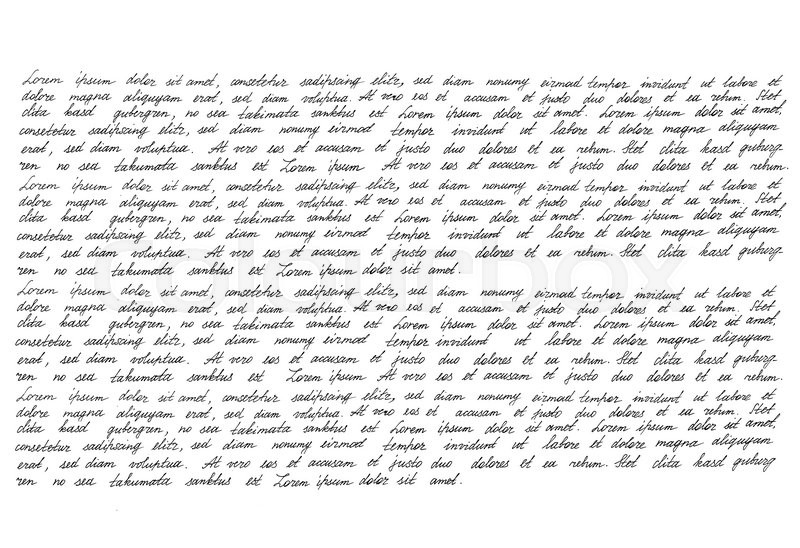 Lorem ipsum dolor sit amet, consetetur sadipscing elitr, sed diam nonumy eirmod tempor invidunt ut labore et
dolore magna aliquyam erat, sed diam voluptua. At vero eos et accusam et justo duo dolores et ea rebum. Stet
clita kasd gubergren, no sea takimata sanktus est Lorem ipsum dolor sit amet. Lorem ipsum dolor sit amet,
consetetur sadipscing elitr, sed diam nonumy eirmod tempor invidunt ut labore et dolore magna aliquyam
erat, sed diam voluptua. At vero eos et accusam et justo duo dolores et ea rebum. Stet clita kasd guburg
ren no sea takumata sanktus est Lorem ipsum At vero eos et accusam et justo duo dolores et ea rebum.
Lorem ipsum dolor sit amet, consetetur sadipscing elitr, sed diam nonumy eirmod tempor invidunt ut labore et
dolore magna aliquyam erat, sed diam voluptua. At vero eos et accusam et justo duo dolores et ea rebum. Stet
clita kasd gubergren, no sea takimata sanktus est Lorem ipsum dolor sit amet. Lorem ipsum dolor sit amet,
consetetur sadipscing elitr, sed diam nonumy eirmod tempor invidunt ut labore et dolore magna aliquyam
erat, sed diam voluptua. At vero eos et accusam et justo duo dolores et ea rebum. Stet clita kasd guburg
ren no sea takumata sanktus est Lorem ipsum dolor sit amet.
Lorem ipsum dolor sit amet, consetetur sadipscing elitr, sed diam nonumy eirmod tempor invidunt ut labore et
dolore magna aliquyam erat, sed diam voluptua. At vero eos et accusam et justo duo dolores et ea rebum. Stet
clita kasd gubergren, no sea takimata sanktus est Lorem ipsum dolor sit amet. Lorem ipsum dolor sit amet,
consetetur sadipscing elitr, sed diam nonumy eirmod tempor invidunt ut labore et dolore magna aliquyam
erat, sed diam voluptua. At vero eos et accusam et justo duo dolores et ea rebum. Stet clita kasd guburg
ren no sea takumata sanktus est Lorem ipsum At vero eos et accusam et justo duo dolores et ea rebum.
Lorem ipsum dolor sit amet, consetetur sadipscing elitr, sed diam nonumy eirmod tempor invidunt ut labore et
dolore magna aliquyam erat, sed diam voluptua. At vero eos et accusam et justo duo dolores et ea rebum. Stet
clita kasd gubergren, no sea takimata sanktus est Lorem ipsum dolor sit amet. Lorem ipsum dolor sit amet,
consetetur sadipscing elitr, sed diam nonumy eirmod tempor invidunt ut labore et dolore magna aliquyam
erat, sed diam voluptua. At vero eos et accusam et justo duo dolores et ea rebum. Stet clita kasd guburg
ren no sea takumata sanktus est Lorem ipsum dolor sit amet.